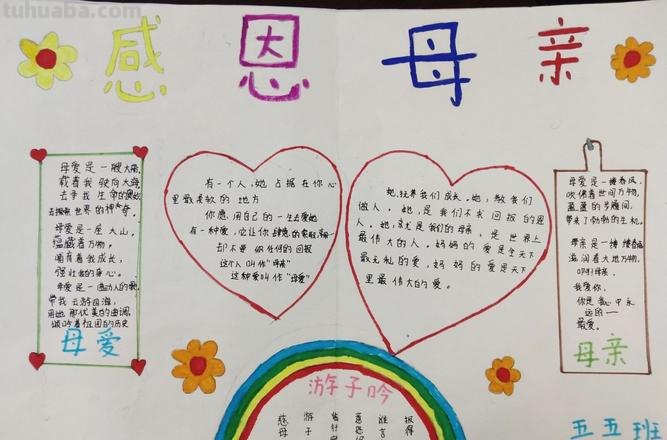 tuhuaba.com
感恩母亲
母爱是一艘大船,
载着我驶向大海
去寻找生命的
世界的神奇。
母爱是一座大山,
蕴藏着万物,
哺育着我成长,
强壮的身心。
母爱是一动人的歌,
带我云游四海,
用她那优美的曲调,
歌吟着祖国的历史
母爱
有一个人,她占据在你心
里最柔软的地方
你愿用自己的一生去爱她
有一种爱,它让你肆意的索取,
却不要你任何的回报
这个人叫作“母亲”
这种爱叫作“母爱”
她,抚养我们成长。她,教我们
做人。她,是我们不求回报的恩
人。她,就是我们的母亲,是世界上
最伟大的人。妈妈的爱是全天下
最无私的爱,妈妈的爱是天下
里最伟大的爱。
母爱是一缕春风,
吹拂着世间万物,
带来了勃勃的生机。
母亲是一
滋润着大地万物,
母亲,
我爱你,
你是我心中永
远的一
最爱。
母亲
游子吟
慈母
游子
临行
意恐
谁言
报得
五五班